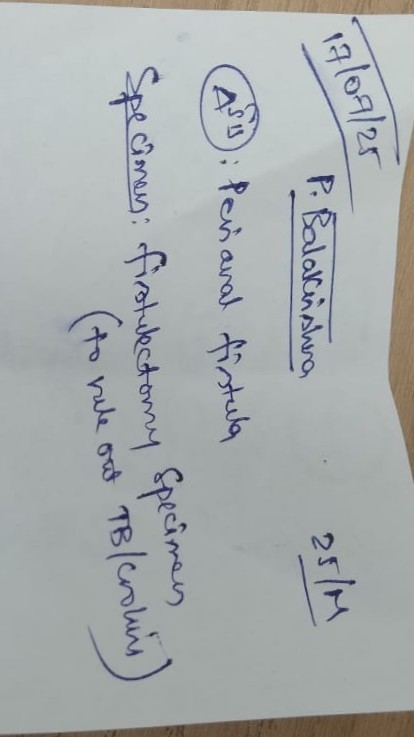 17/07/25
P. Balakrishna 25/M
Δsis : Perianal fistula
Specimen: fistulectomy specimen
(to rule out TB/crohn's)